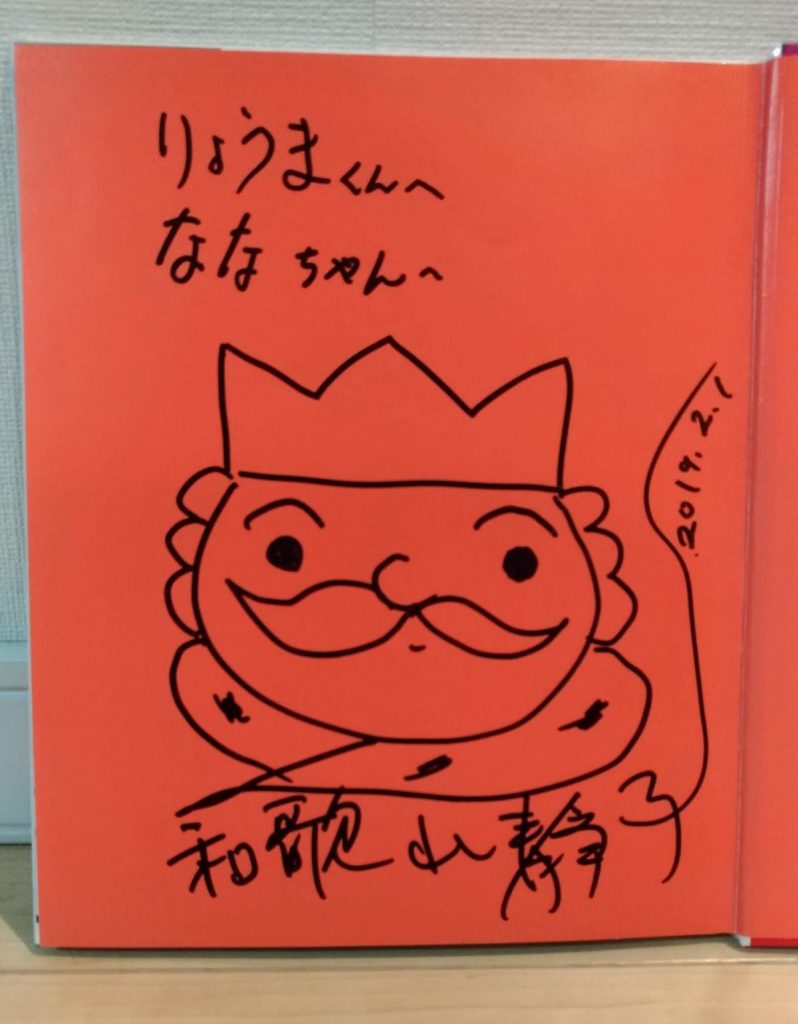 りょうまくんへ
ななちゃんへ
2019.2.1
和歌山静子